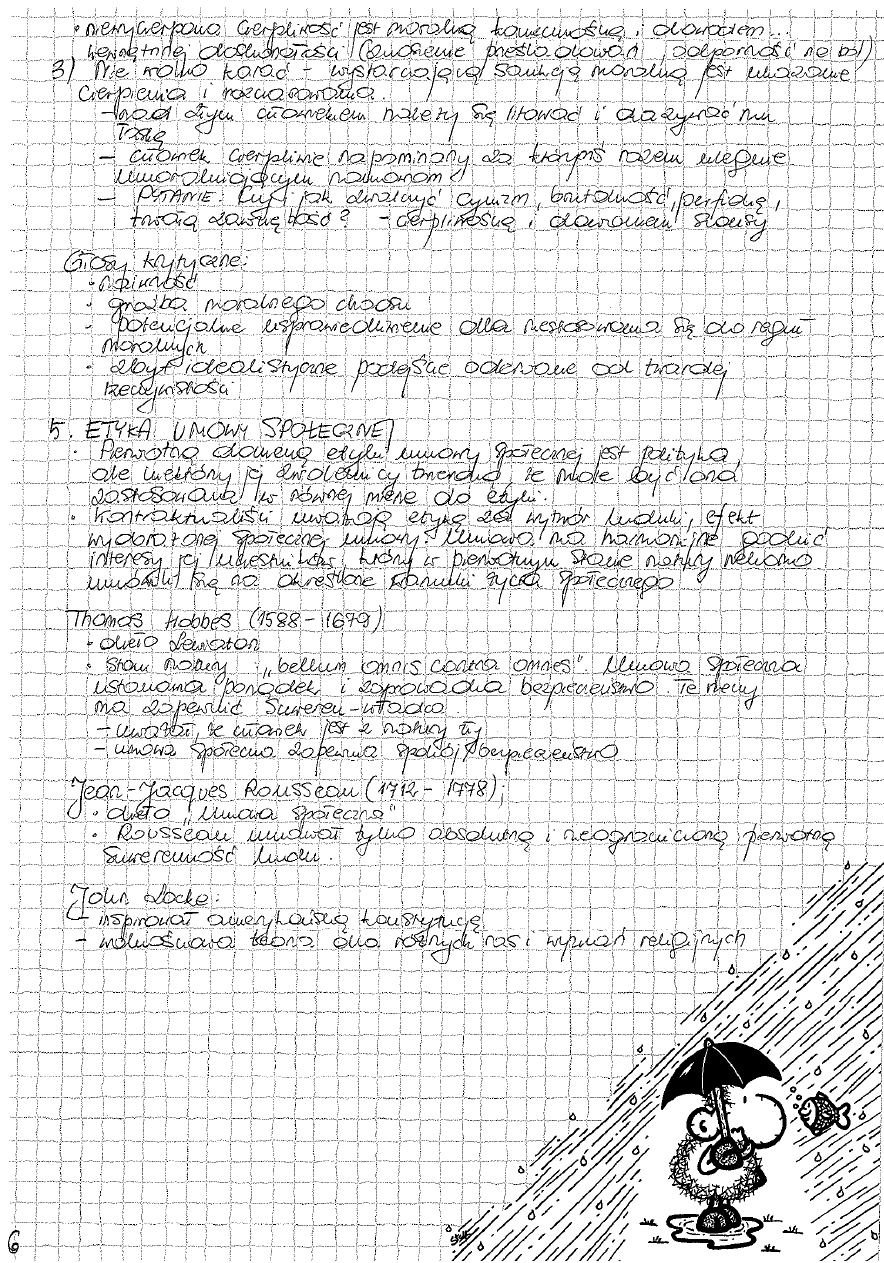 • niewyczerpana cierpliwość jest moralną koniecznością i dowodem...
wewnętrznej doskonałości (znoszenie prześladowań, odporność na ból)
3) Nie wolno karać – wystarczającą sankcją moralną jest ukazanie
cierpienia i rozczarowania.
– nad złym człowiekiem należy się litować i okazywać mu
łaskę
– człowiek cierpliwie napominany za którymś razem ulegnie
umoralniającym namowom
– PYTANIE: Czy i jak zwalczyć cynizm, brutalność, perfidię,
twardą zawziętość? – cierpliwością i dawaniem szansy
Głosy krytyczne:
• naiwność
• groźba moralnego chaosu
• potencjalne usprawiedliwienie dla niestosowania się do reguł
moralnych
• zbyt idealistyczne podejście oderwane od twardej
rzeczywistości
5. ETYKA UMOWY SPOŁECZNEJ
• Pierwotną domeną etyki umowy społecznej jest polityka,
ale niektórzy jej zwolennicy twierdzą, że może być ona
zastosowana w równej mierze do etyki.
• Kontraktualiści uważają etykę za wytwór ludzki, efekt
wyobrażonej społecznej umowy. Umowa ma harmonijnie godzić
interesy jej uczestników, którzy w pierwotnym stanie natury rekomo
umówili się na określone warunki życia społecznego
Thomas Hobbes (1588 – 1679)
• dzieło Lewiatan
• stan natury: „bellum omnis contra omnes". Umowa społeczna
ustanawia porządek i zaprowadza bezpieczeństwo. Te rzeczy
ma zapewnić Suweren-władca
– uważał, że człowiek jest z natury zły
– umowa społeczna zapewnia spokój i bezpieczeństwo
Jean-Jacques Rousseau (1712 – 1778);
• dzieło „Umowa społeczna"
• Rousseau uznawał tylko absolutną i nieograniczoną pierwotną
suwerenność ludu.
John Locke:
– inspirował amerykańską konstytucję
– wolnościowa teoria dla różnych ras i wyznań religijnych
6